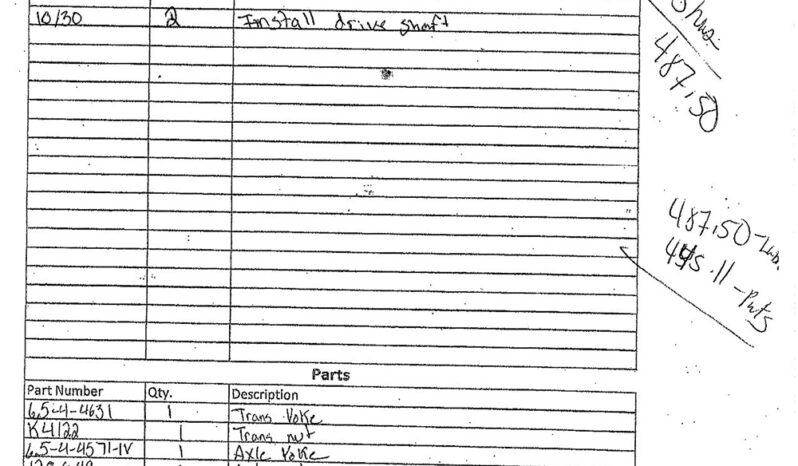 10/30 2 Install drive shaft
hrs.
487.50
487.50-
445.11-Parts
Parts
Part Number Qty. Description
6.5-4-4631 1 Trans Yoke
K4122 1 Trans nut
6.5-4-4571-1V 1 Axle Yoke